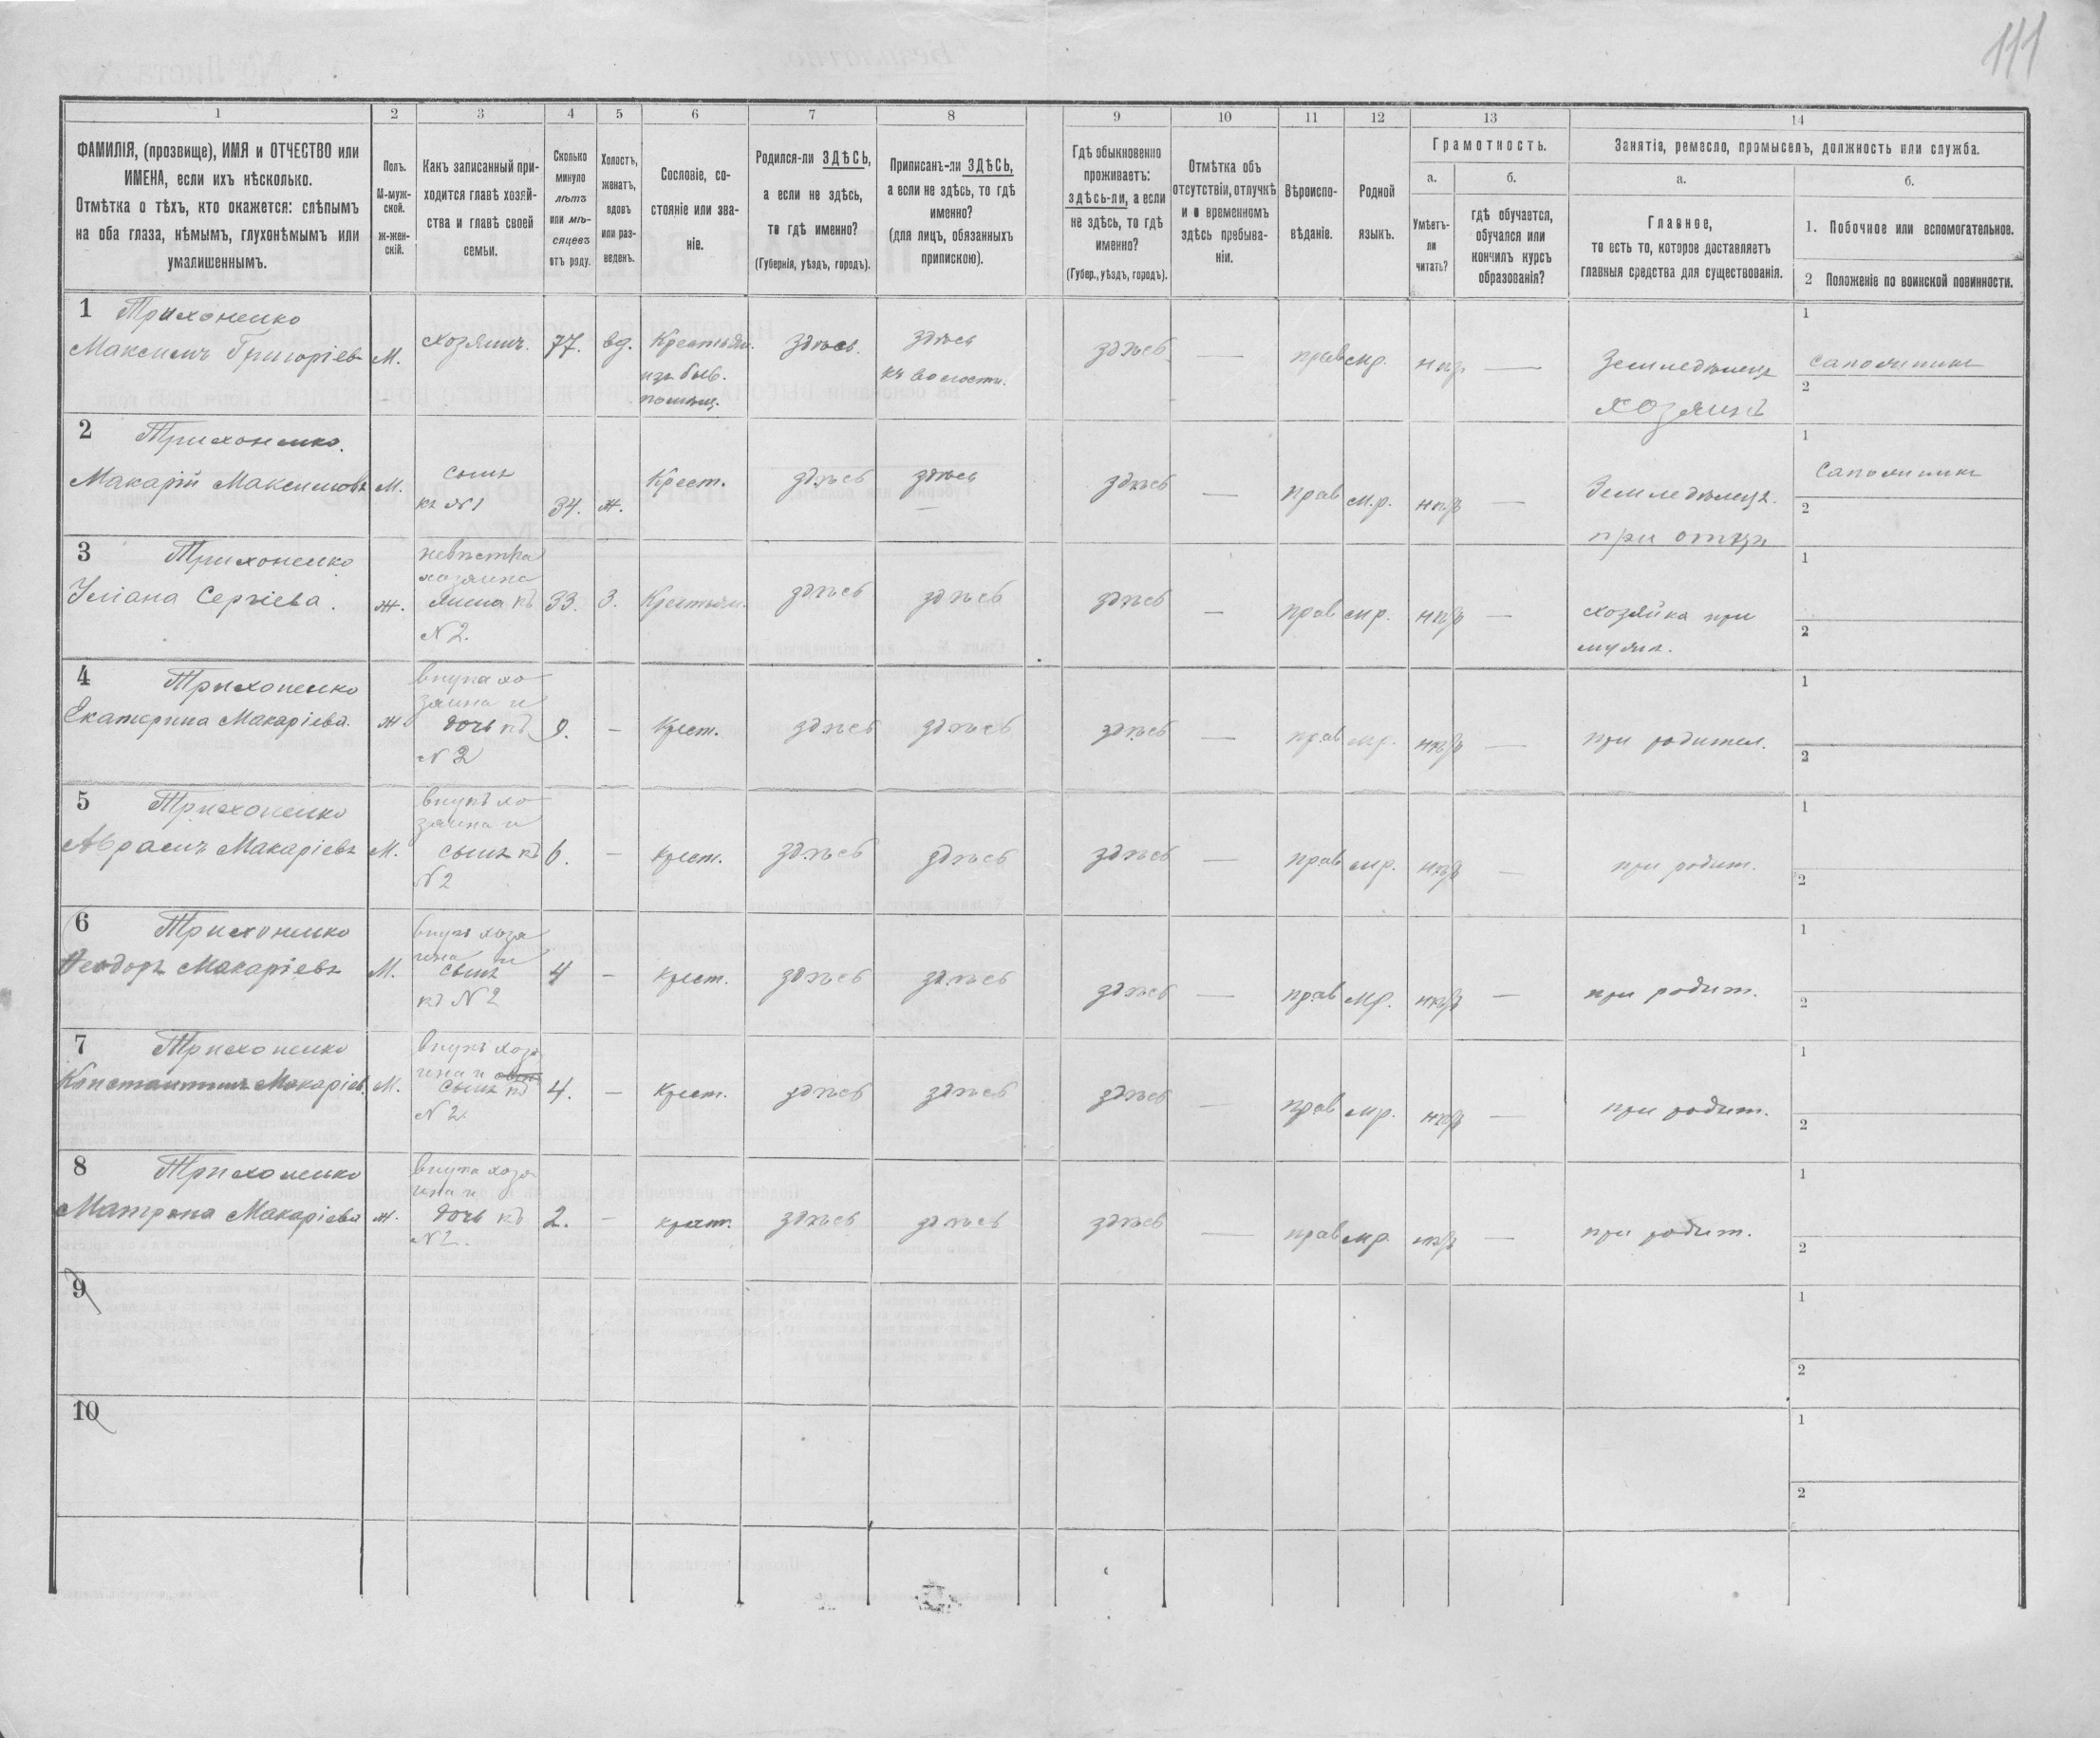 111
1 2 3 4 5 6 7 8 9 10 11 12 13 14
ФАМИЛІЯ, (прозвище), ИМЯ и ОТЧЕСТВО или
ИМЕНА, если ихъ нѣсколько.
Отмѣтка о тѣхъ, кто окажется: слѣпымъ
на оба глаза, нѣмымъ, глухонѣмымъ или
умалишеннымъ.
Полъ.
М-муж-
ской.
ж-жен-
скій.
Какъ записанный при-
ходится главѣ хозяй-
ства и главѣ своей
семьи.
Сколько
минуло
лѣтъ
или мѣ-
сяцевъ
отъ роду.
Холостъ,
женатъ,
вдовъ
или раз-
веденъ.
Сословіе, со-
стояніе или зва-
ніе.
Родился-ли ЗДѢСЬ,
а если не здѣсь,
то гдѣ именно?
(Губернія, уѣздъ, городъ).
Приписанъ-ли ЗДѢСЬ,
а если не здѣсь, то гдѣ
именно?
(для лицъ, обязанныхъ
припискою).
Гдѣ обыкновенно
проживаетъ:
здѣсь-ли, а если
не здѣсь, то гдѣ
именно?
(Губер., уѣздъ, городъ).
Отмѣтка объ
отсутствіи, отлучкѣ
и о временномъ
здѣсь пребыва-
ніи.
Вѣроиспо-
вѣданіе.
Родной
языкъ.
Грамотность.
а.
Умѣетъ-
ли
читать?
б.
гдѣ обучается,
обучался или
кончилъ курсъ
образованія?
Занятія, ремесло, промыселъ, должность или служба.
а.
Главное,
то есть то, которое доставляетъ
главныя средства для существованія.
б.
1. Побочное или вспомогательное.
2 Положеніе по воинской повинности.
1 Трихоненко
Максимъ Григоріев М. хозяинъ. 77. вд. Крестьян. здѣсь. здѣсь здѣсь — прав мр. нѣтъ — Земледѣлецъ 1 сапожникъ
изъ быв. къ волости. 2
помѣщ. хозяинъ
2 Трихоненко. 1
Макарій Максимовъ М. сынъ Крест. здѣсь здѣсь здѣсь — прав м.р. нѣтъ — Земледѣлецъ. сапожникъ
къ №1 34. ж. — 2
при отцѣ
3 Трихоненко невѣстка 1
хозяина
Уліана Сергіева. ж. жена къ 33. З. Крестьян. здѣсь здѣсь здѣсь — прав мр. нѣтъ — хозяйка при
№ 2. мужѣ. 2
4 Трихоненко внука хо 1
зяина и
Екатерина Макаріева. ж дочь къ 9. — Крест. здѣсь здѣсь здѣсь — прав мр. нѣтъ — при родител.
№ 2 2
5 Трихоненко внукъ хо 1
зяина и
Аврамъ Макаріевъ М. сынъ къ 6. — крест. здѣсь здѣсь здѣсь — прав мр. нѣтъ — при родит.
№ 2 2
6 Трихоненко внукъ хозя 1
ина и
Ѳеодоръ Макаріевъ М. сынъ 4 — крест. здѣсь здѣсь здѣсь — прав мр. нѣтъ — при родит.
къ № 2 2
7 Трихоненко внукъ хозя 1
ина и
Константинъ Макаріев. М. сынъ къ 4. — Крест. здѣсь здѣсь здѣсь — прав мр. нѣтъ — при родит.
№ 2. 2
8 Трихоненко внука хозя 1
ина и
Матрона Макаріева ж. дочь къ 2. — крест. здѣсь здѣсь здѣсь — прав мр. нѣтъ — при родит.
№ 2. 2
9 1
2
10 1
2